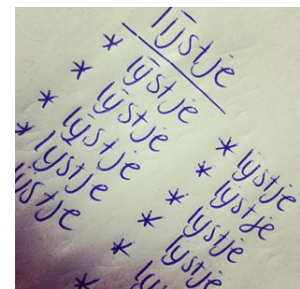 lijstje
* lijstje
* lijstje
* lijstje
* lijstje
lijstje
* lijstje
* lijstje
* lijstje
* lijstje